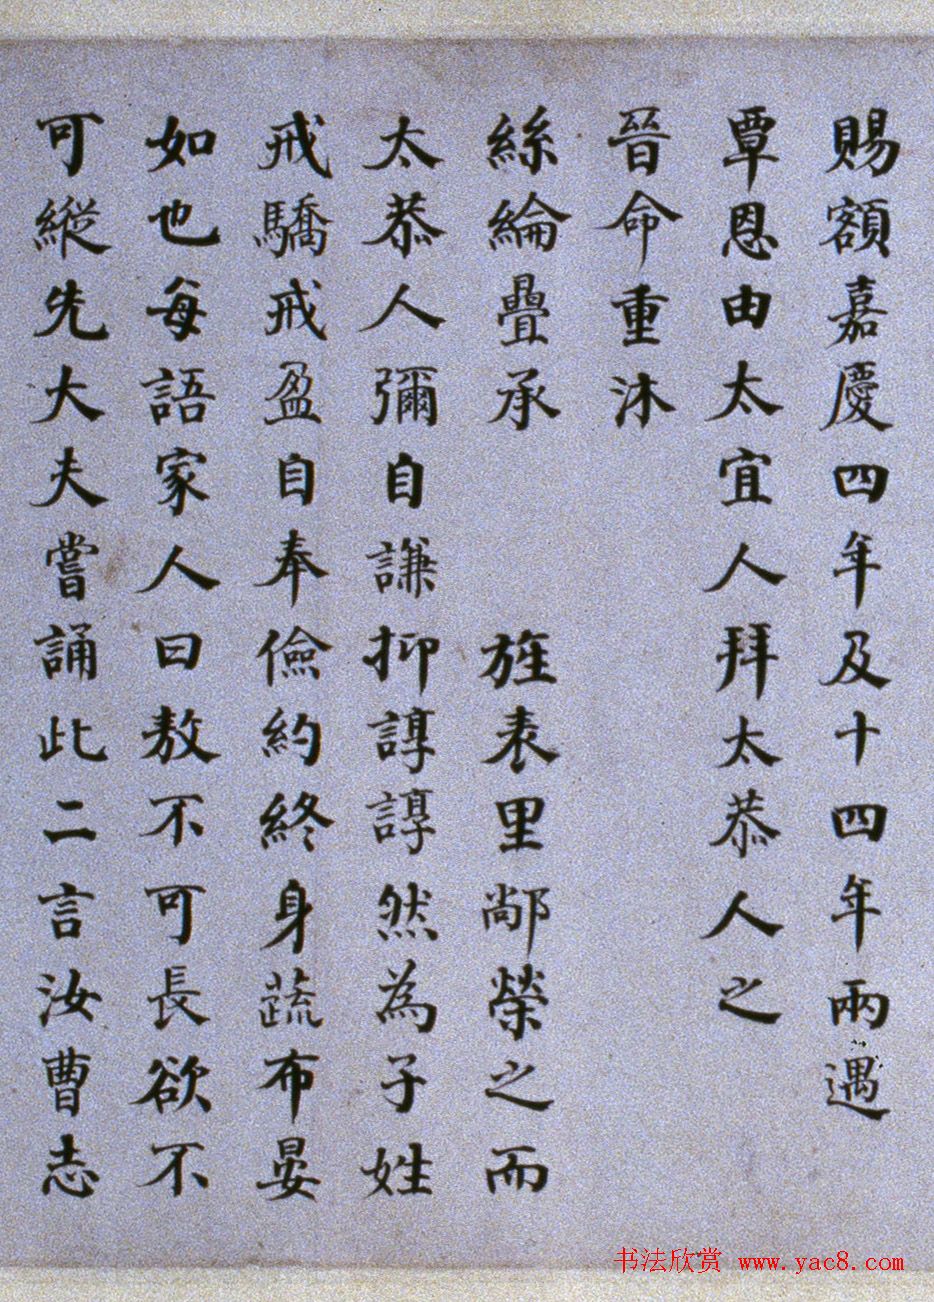 賜額嘉慶四年及十四年兩遇
覃恩由太宜人拜太恭人之
晉命重沐
絲綸疊承 旌表里鄰榮之而
太恭人彌自謙抑諄諄然為子姓
戒驕戒盈自奉儉約終身蔬布晏
如也每語家人曰敖不可長欲不
可縱先大夫嘗誦此二言汝曹志
书法欣赏 www.yac8.com